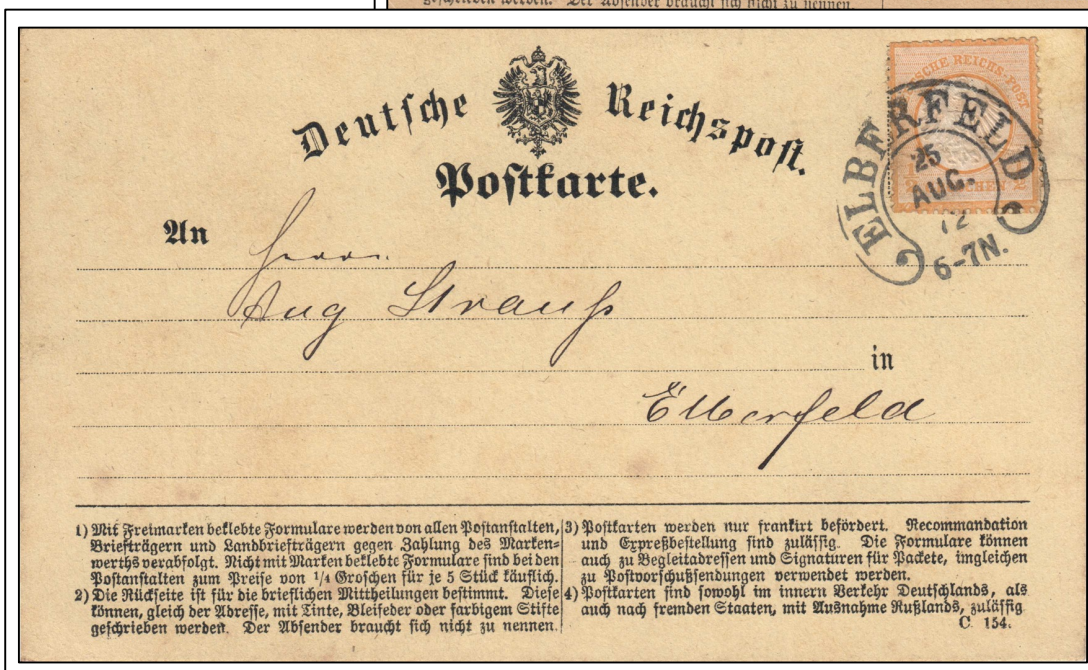 geschrieben werden. Der Absender braucht sich nicht zu nennen.
Deutsche Reichspost.
Postkarte.
DEUTSCHE REICHS-POST
ELBERFELD
25
AUG.
72
6-7N.
An
Herrn
Aug Strauß
in
Elberfeld
1) Mit Freimarken beklebte Formulare werden von allen Postanstalten,
Briefträgern und Landbriefträgern gegen Zahlung des Marken-
werths verabfolgt. Nicht mit Marken beklebte Formulare sind bei den
Postanstalten zum Preise von 1/4 Groschen für je 5 Stück käuflich.
2) Die Rückseite ist für die brieflichen Mittheilungen bestimmt. Diese
können, gleich der Adresse, mit Tinte, Bleifeder oder farbigem Stifte
geschrieben werden. Der Absender braucht sich nicht zu nennen.
3) Postkarten werden nur frankirt befördert. Recommandation
und Expreßbestellung sind zulässig. Die Formulare können
auch zu Begleitadressen und Signaturen für Packete, imgleichen
zu Postvorschußsendungen verwendet werden.
4) Postkarten sind sowohl im innern Verkehr Deutschlands, als
auch nach fremden Staaten, mit Ausnahme Rußlands, zulässig
C. 154.